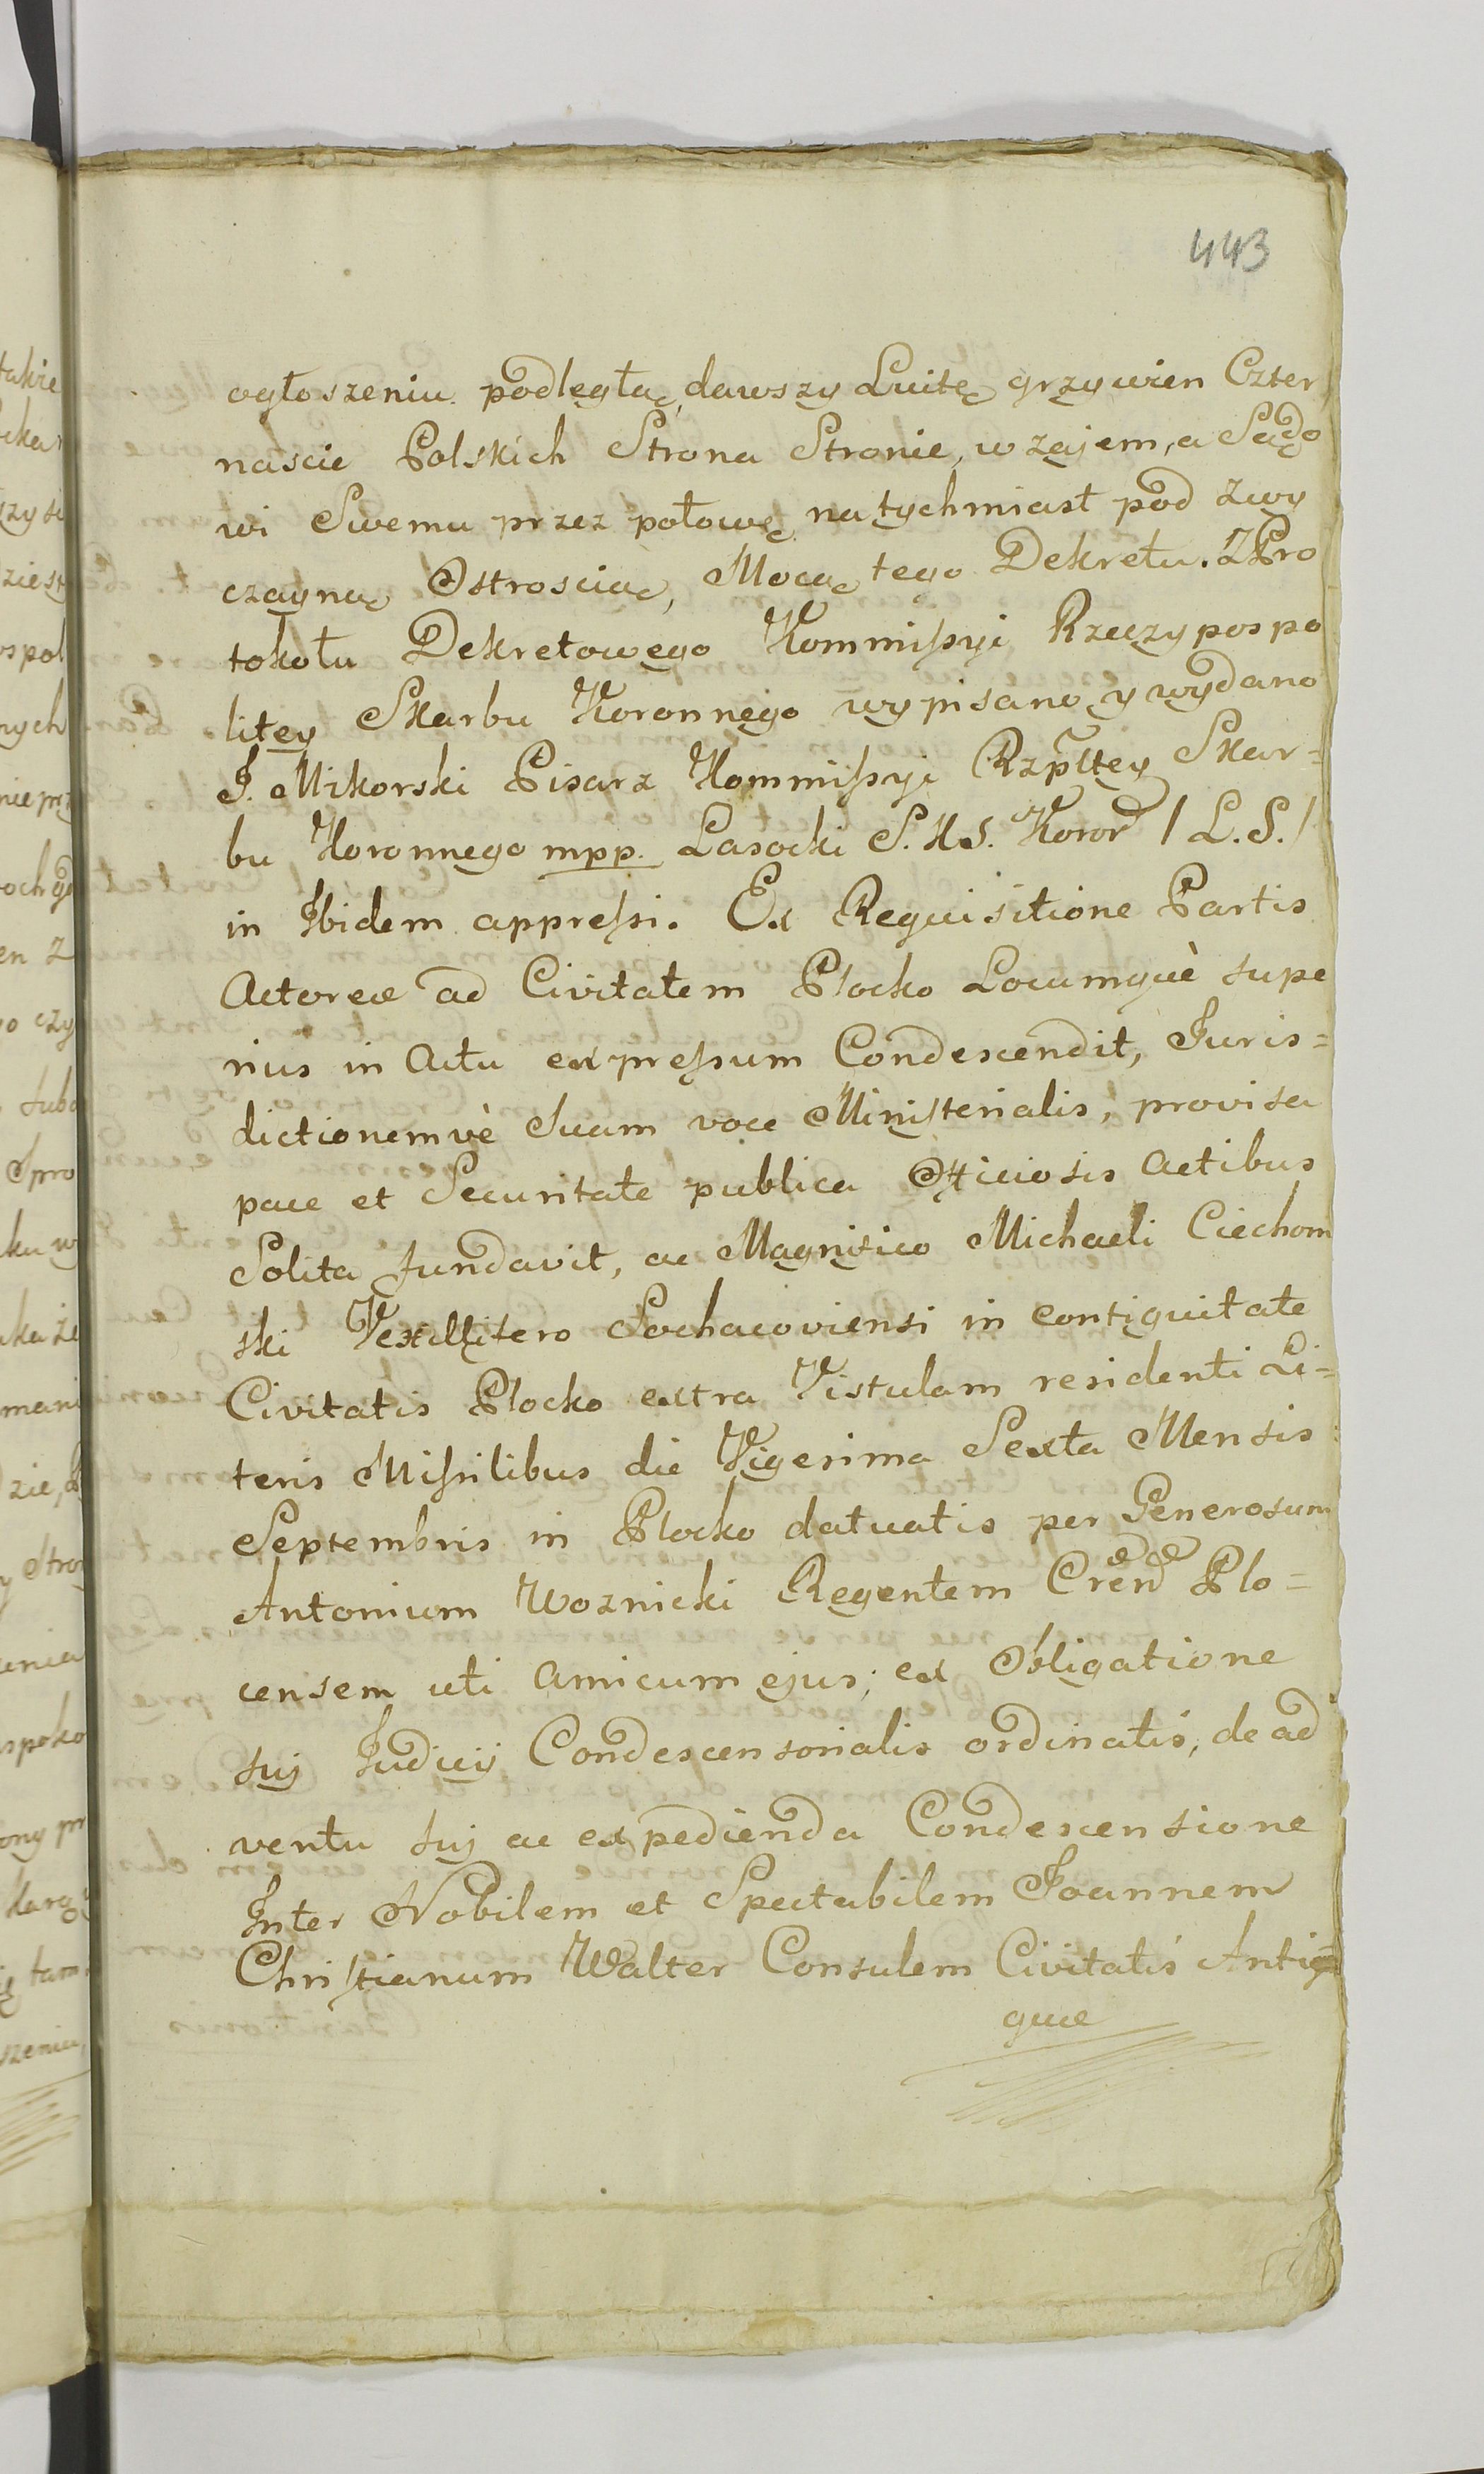 443
ogłoszeniu podległą, dawszy Luitę grzywien Czter
nascie Polskich Strona Stronie, wzajem, a Sądo
wi Swemu przez połowę natychmiast pod zwy
czayną Ostroscią, Mocą tego Dekretu. Z Pro
tokołu Dekretowego Kommißyi Rzeczypospo
litey Skarbu Koronnego wypisano y wydano
J. Mikorski Pisarz Kommißyi Rzpltey Skar=
bu Koronnego mpp. Lasocki S.K.S. Koron / L.S. /
in Ibidem appreßi. Ex Requisitione Partis
Actoreæ ad Civitatem Plocko Locumquè supe
rius in Actu expreßum Condescendit, Juris=
dictionemvè Suam voce Ministerialis, provisa
pace et Securitate publica Officiosis Actibus
Solita fundavit, ac Magnifico Michaeli Ciechom
ski Vexillifero Sochacoviensi in contiguitate
Civitatis Plocko extra Vistulam residenti Li=
teris Mißilibus die Vigesima Sexta Mensis
Septembris in Plocko datuatis per Generosum
Antonium Woznicki Regentem Cren Plo=
censem uti Amicum ejus, ex Obligatione
sui Judicij Condescensorialis ordinatis, de ad
ventu sui ac expedienda Condescensione
Inter Nobilem et Spectabilem Joannem
Christianum Walter Consulem Civitatis Antiq
quæ